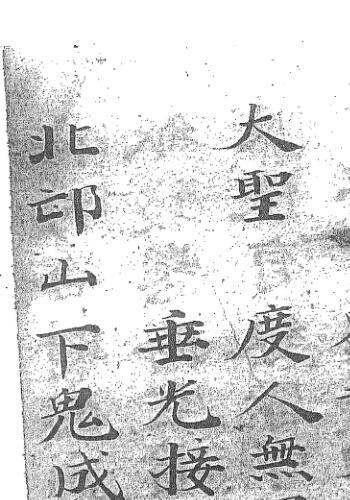 大聖 度人無
垂光接
北邙山下鬼成